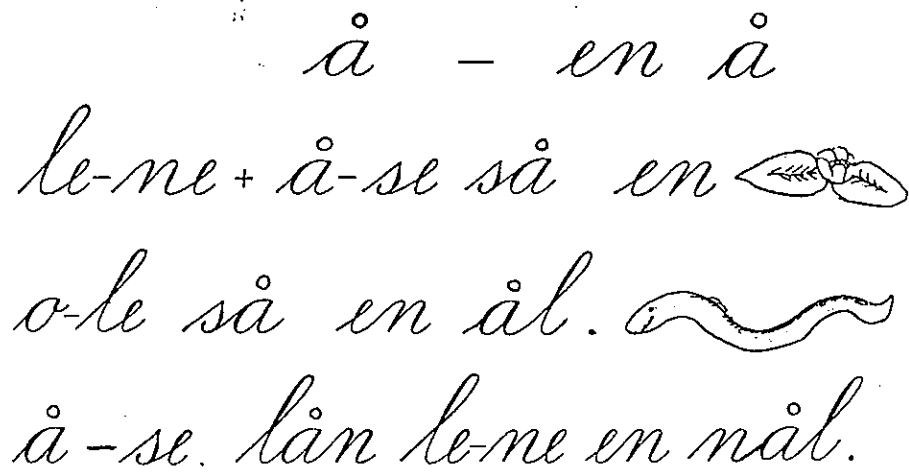 å – en å
le-ne + å-se så en
o-le så en ål.
å-se. lån le-ne en nål.